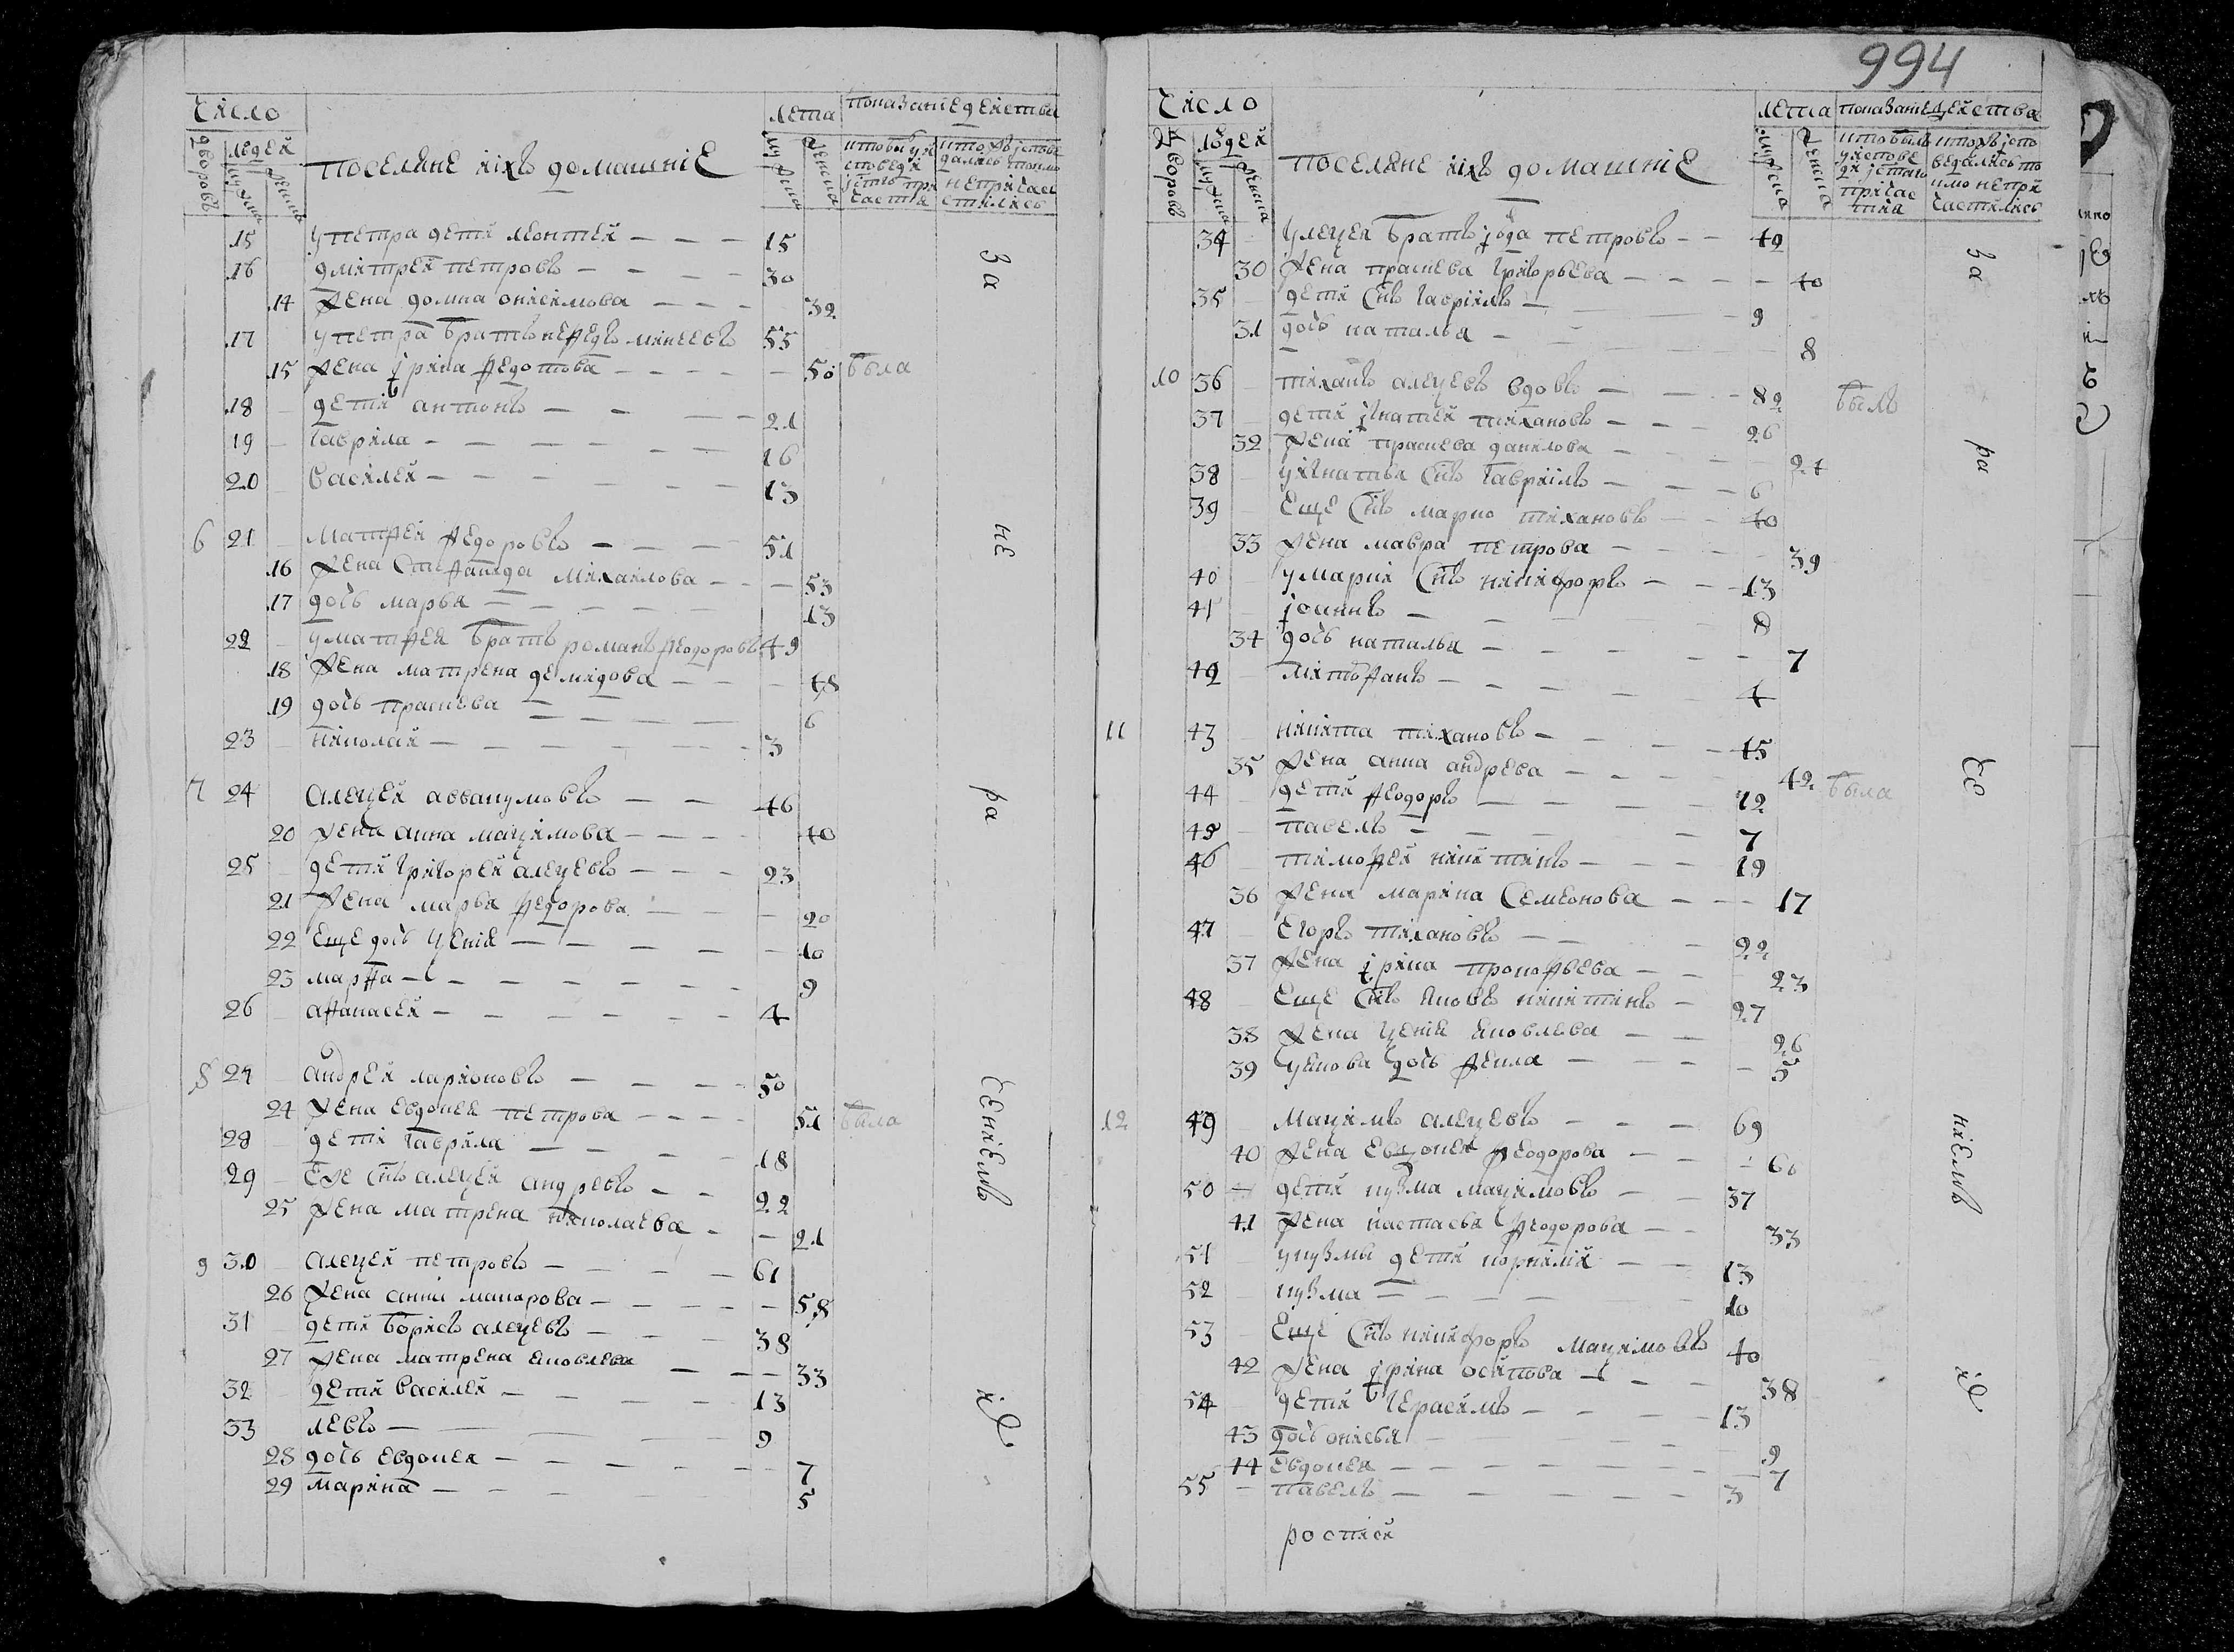 994
Число
дворовъ
людей
муска
женска
поселяне ихъ домашніе
лета
муска
женска
показание действа
15 у петра дети леонтей 15
16 дмитрей петровъ 30
14 жена домна онисимова 32
17 у петра братъ нефедъ минеевъ 55
15 жена ирина федотова 50 была
18 дети антонъ 21
19 гаврила 16
20 василей 13
6 21 матфей федоровъ 51
16 жена стефанида михаилова 53
17 дочь марья 13
22 у матфея братъ романъ феодоровъ 49
18 жена матрена демидова 48
19 дочь прасковья 6
23 николай 3
7 24 алексей аввакумовъ 46
20 жена анна максимова 40
25 дети григорей алексевъ 23
21 жена марья федорова 20
22 еще дочь ксения 10
23 марфа 9
26 афанасей 4
8 27 андрей ларионовъ 50
24 жена евдокея петрова 51 была
28 дети гаврила 18
29 еще снъ алексей андревъ 22
25 жена матрена николаева 21
9 30 алексей петровъ 61
26 жена анна макарова 58
31 дети борисъ алексевъ 38
27 жена матрена яковлева 33
32 дети василей 13
33 левъ 9
28 дочь евдокея 7
29 марина 5
за
не
ра
ченіемъ
Число
дворовъ
людей
муска
женска
поселяне ихъ домашніе
лета
муска
женска
показание действа
34 у алексея братъ іюда петровъ 42
30 жена прасковья григорьева 40
35 дети снъ гавриилъ 9
31 дочь наталья 8
10 36 тиханъ алексевъ вдовъ 82 былъ
37 дети игнатей тихановъ 26
32 жена прасковья данилова 24
38 у игнатья снъ гавриилъ 6
39 еще снъ марко тихановъ 40
33 жена мавра петрова 39
40 у марка снъ никифоръ 13
41 іоаннъ 8
34 дочь наталья 7
42 митрофанъ 4
11 43 никита тихановъ 45
35 жена анна андрева 42 была
44 дети феодоръ 12
45 павелъ 7
46 тимофей никитинъ 19
36 жена марина семеонова 17
47 егоръ тихановъ 22
37 жена ирина прокофьева 23
48 еще снъ яковъ никитинъ 27
38 жена ксения яковлева 26
39 у якова дочь фекла 5
12 49 максимъ алексевъ 69
40 жена евдокея феодорова 60
50 дети кузма максимовъ 37
41 жена настасья феодорова 33
51 у кузмы дети корнилий 13
52 кузма 10
53 еще снъ никифоръ максимовъ 40
42 жена ирина осипова 38
54 дети герасимъ 13
43 дочь онисья 9
44 евдокея 7
55 павелъ 3
росписи
за
ра
че
ниемъ